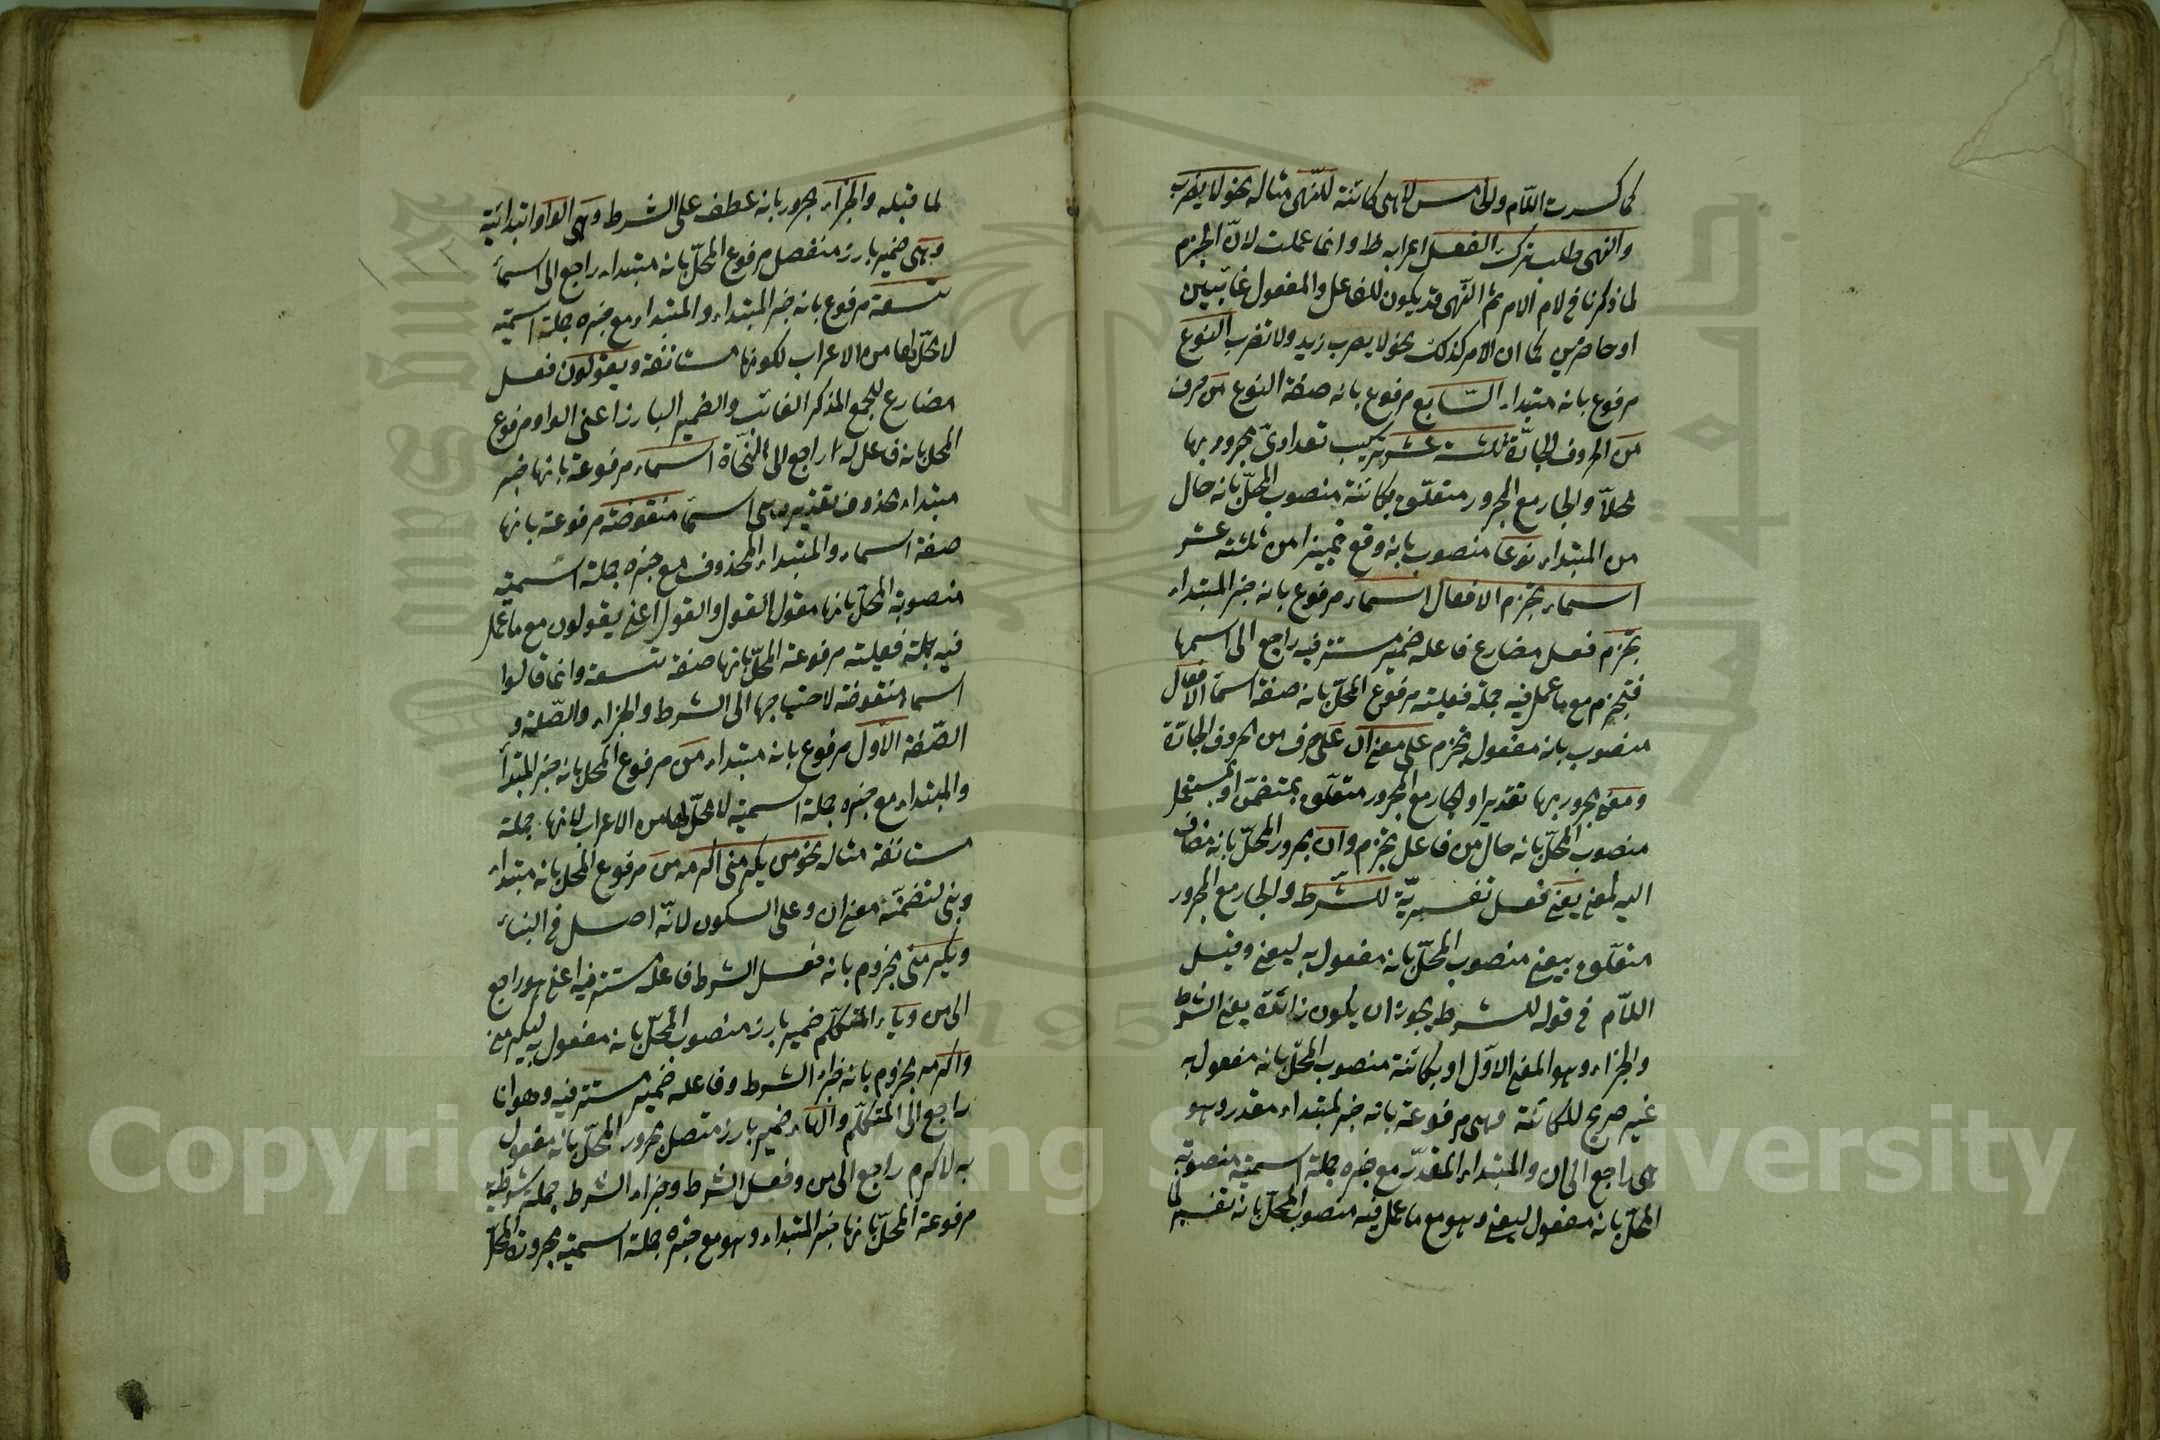 كما كسرت اللام والخامس لا هى كائنة للنهى مثاله نحو لا يضرب
والنهى طلب ترك الفعل اعرابه ط وانما عملت لان الجزم
لما ذكرنا فى لام الامر ثم النهى قد يكون للفاعل والمفعول غائبين
او حاضرين كما ان الامر كذلك نحو لا يضرب زيد ولا تضرب النوع
مرفوع بانه مبتداء السابع مرفوع بانه صفة النوع من حرف
من الحروف الجارة ثلثة عشر تركيب تعدادى مجرور بها
محلا والجار مع المجرور متعلق بكائنة منصوب المحل بانه حال
من المبتداء نوعا منصوب بانه وقع تميزا من ثلثة عشر
اسماء تجزم الافعال اسماء مرفوع بانه خبر المبتداء
تجزم فعل مضارع فاعله ضمير مستتر فيه راجع الى اسمها
فتجزم مع ما عمل فيه جملة فعلية مرفوع المحل بانه صفة اسما الافعال
منصوب بانه مفعول تجزم على معنى ان على حرف من الحروف الجارة
ومعنى مجرور بها تقديرا والجار مع المجرور متعلق بمتضمن او بمشتمل
منصوب المحل بانه حال من فاعل تجزم وان مجرور المحل بانه مضاف
اليه لمعنى يعنى فعل تفسيرية للشرط والجار مع المجرور
متعلق بيعنى منصوب المحل بانه مفعول به ليعنى وقيل
اللام فى قوله للشرط يجوز ان يكون زائدة يعنى الشرط
والجزاء وهو المعنى الاول او بكائنة منصوب المحل بانه مفعول به
غير صريح للكائنة وهى مرفوعة بانه خبر لمبتداء مقدر وهو
هى راجع الى ان والمبتداء المقدر مع خبره جملة اسمية منصوبة
المحل بانه مفعول ليعنى وهو مع ما عمل فيه منصوب المحل بانه تفسير لما
لما قبله والجزاء مجرور بانه عطف على الشرط وهى الواو ابتدائية
وهى ضمير بارز منفصل مرفوع المحل بانه مبتداء راجع الى اسماء
تسعة مرفوع بانه خبر المبتداء والمبتداء مع خبره جملة اسمية
لا محل لها من الاعراب لكونها مستانفة ويقولون فعل
مضارع للجمع المذكر الغائب والضمير البارز اعنى الواو مرفوع
المحل بانه فاعل له راجع الى النحاة اسماء مرفوعة بانها خبر
مبتداء محذوف تقديره هى اسما منقوصة مرفوعة بانها
صفة اسماء والمبتداء المحذوف مع خبره جملة اسمية
منصوبة المحل بانها مقول القول والقول اعنى يقولون مع ما عمل
فيه جملة فعلية مرفوعة المحل بانها صفة تسعة وانما قالوا
اسماء منقوصة لاحتياجها الى الشرط والجزاء والصلة و
الصفة الاول مرفوع بانه مبتداء من مرفوع المحل بانه خبر المبتدأ
والمبتداء مع خبره جملة اسمية لا محل لها من الاعراب لانها جملة
مستانفة مثاله نحو من يكرمنى اكرمه من مرفوع المحل بانه مبتداء
وبنى لتضمنه معنى ان وعلى السكون لانه اصل فى البناء
ويكرمنى مجزوم بانه فعل الشرط فاعله مستتر فيه اعنى هو راجع
الى من وياء المتكلم ضمير بارز منصوب المحل بانه مفعول به ليكرمنى
واكرمه مجزوم بانه جزاء الشرط وفاعله ضمير مستتر فيه وهو انا
راجع الى المتكلم والهاء ضمير بارز متصل مجرور المحل بانه مفعول
به لاكرم راجع الى من وفعل الشرط وجزاء الشرط جملة شرطية
مرفوعة المحل بانها خبر المبتداء وهو مع خبره جملة اسمية مجرورة المحل
Copyright © King Saud University
جامعة الملك سعود
1957